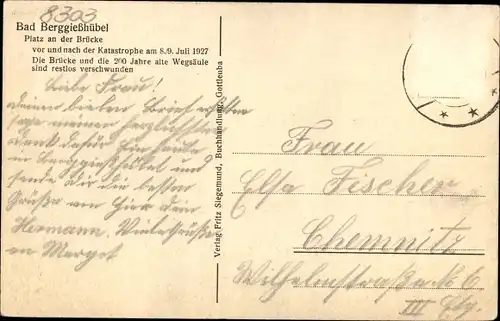 8303
Bad Berggießhübel
Platz an der Brücke
vor und nach der Katastrophe am 8./9. Juli 1927
Die Brücke und die 200 Jahre alte Wegsäule
sind restlos verschwunden
Liebe Frau!
deinen lieben Brief erhalten
sage meinen herzlichsten
Dank dafür Bin heute
in Berggießhübel und
sende dir die besten
Grüße von hier dein
Hermann. Viele Grüße
an Margot
Verlag Fritz Siegemund, Buchhandlung, Gottleuba
Frau
Elsa Fischer
Chemnitz
Wilhelmstraße No 6
III Etg.